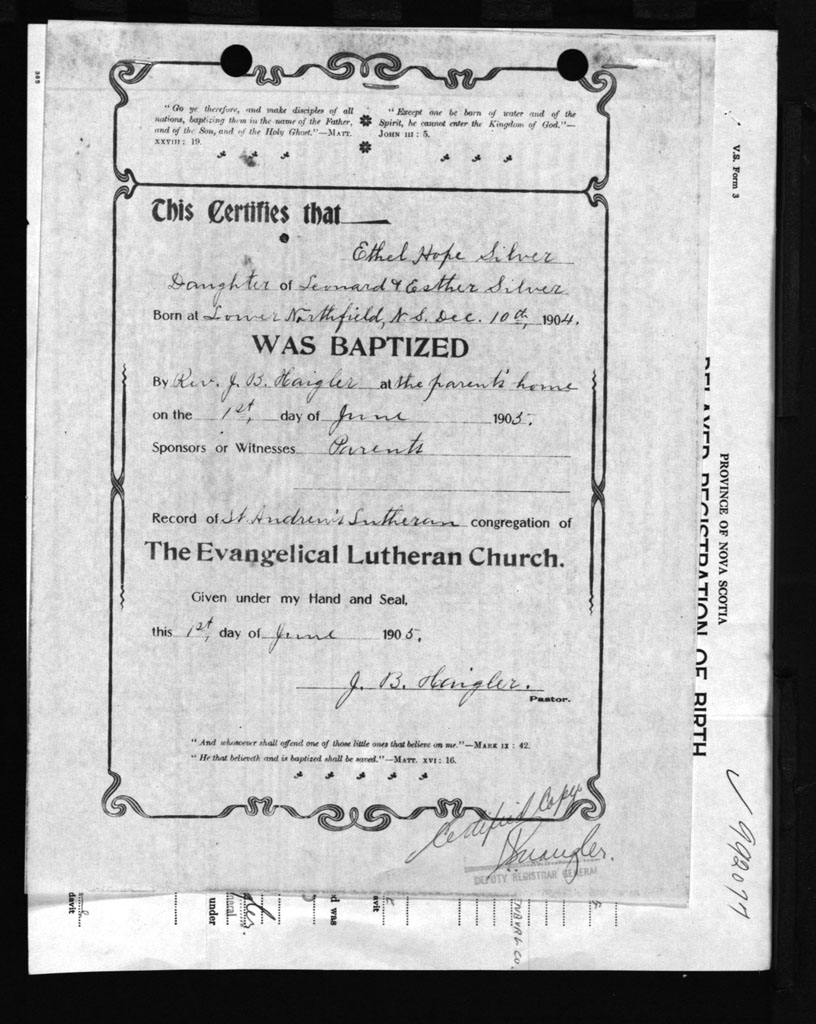 "Go ye therefore, and make disciples of all
nations, baptizing them in the name of the Father,
and of the Son, and of the Holy Ghost."—MATT.
XXVIII: 19.
"Except one be born of water and of the
Spirit, he cannot enter the Kingdom of God."—
JOHN III: 5.
This Certifies that
Ethel Hope Silver
Daughter of Leonard & Esther Silver
Born at Lower Northfield, N. S. Dec. 10th, 1904.
WAS BAPTIZED
By Rev. J. B. Haigler at the parent's home
on the 1st, day of June 1905.
Sponsors or Witnesses Parents
Record of St. Andrew's Lutheran congregation of
The Evangelical Lutheran Church.
Given under my Hand and Seal,
this 1st, day of June 1905.
J. B. Haigler.
Pastor.
"And whosoever shall offend one of those little ones that believe on me."—MARK IX: 42.
"He that believeth and is baptized shall be saved."—MATT. XVI: 16.
Certified Copy
DEPUTY REGISTRAR GENERAL
V.S. Form 3
PROVINCE OF NOVA SCOTIA
DELAYED REGISTRATION OF BIRTH
davit
under
d was